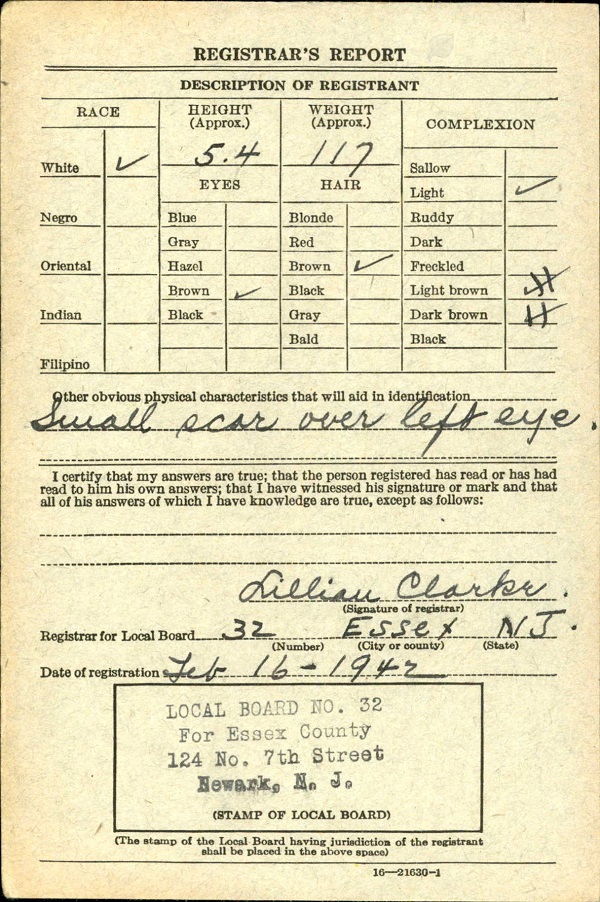 REGISTRAR'S REPORT
DESCRIPTION OF REGISTRANT
RACE
HEIGHT
(Approx.)
WEIGHT
(Approx.)
COMPLEXION
White ✓
5.4
117
Sallow
EYES
HAIR
Light ✓
Negro
Blue
Blonde
Ruddy
Gray
Red
Dark
Oriental
Hazel
Brown ✓
Freckled
Brown ✓
Black
Light brown
Indian
Black
Gray
Dark brown
Bald
Black
Filipino
Other obvious physical characteristics that will aid in identification
Small scar over left eye.
I certify that my answers are true; that the person registered has read or has had
read to him his own answers; that I have witnessed his signature or mark and that
all of his answers of which I have knowledge are true, except as follows:
Lillian Clarke.
(Signature of registrar)
Registrar for Local Board 32 Essex NJ.
(Number) (City or county) (State)
Date of registration Feb 16-1942
LOCAL BOARD NO. 32
For Essex County
124 No. 7th Street
Newark, N. J.
(STAMP OF LOCAL BOARD)
(The stamp of the Local Board having jurisdiction of the registrant
shall be placed in the above space)
16—21630-1